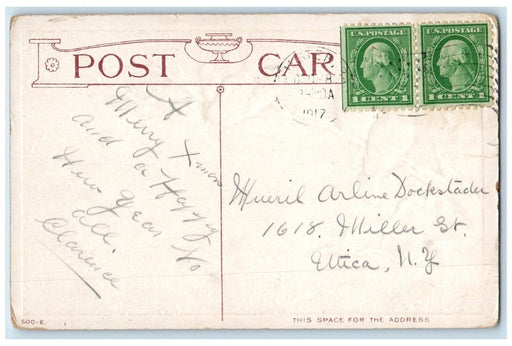 POST CAR
U.S. POSTAGE
U.S. POSTAGE
1 CENT 1
1 CENT 1
1917
A
Merry Xmas
and a Happy
New Year to
all.
Clarence
Mueril Arline Dockstader
1618. Miller St.
Utica, N.Y
500-E.
THIS SPACE FOR THE ADDRESS